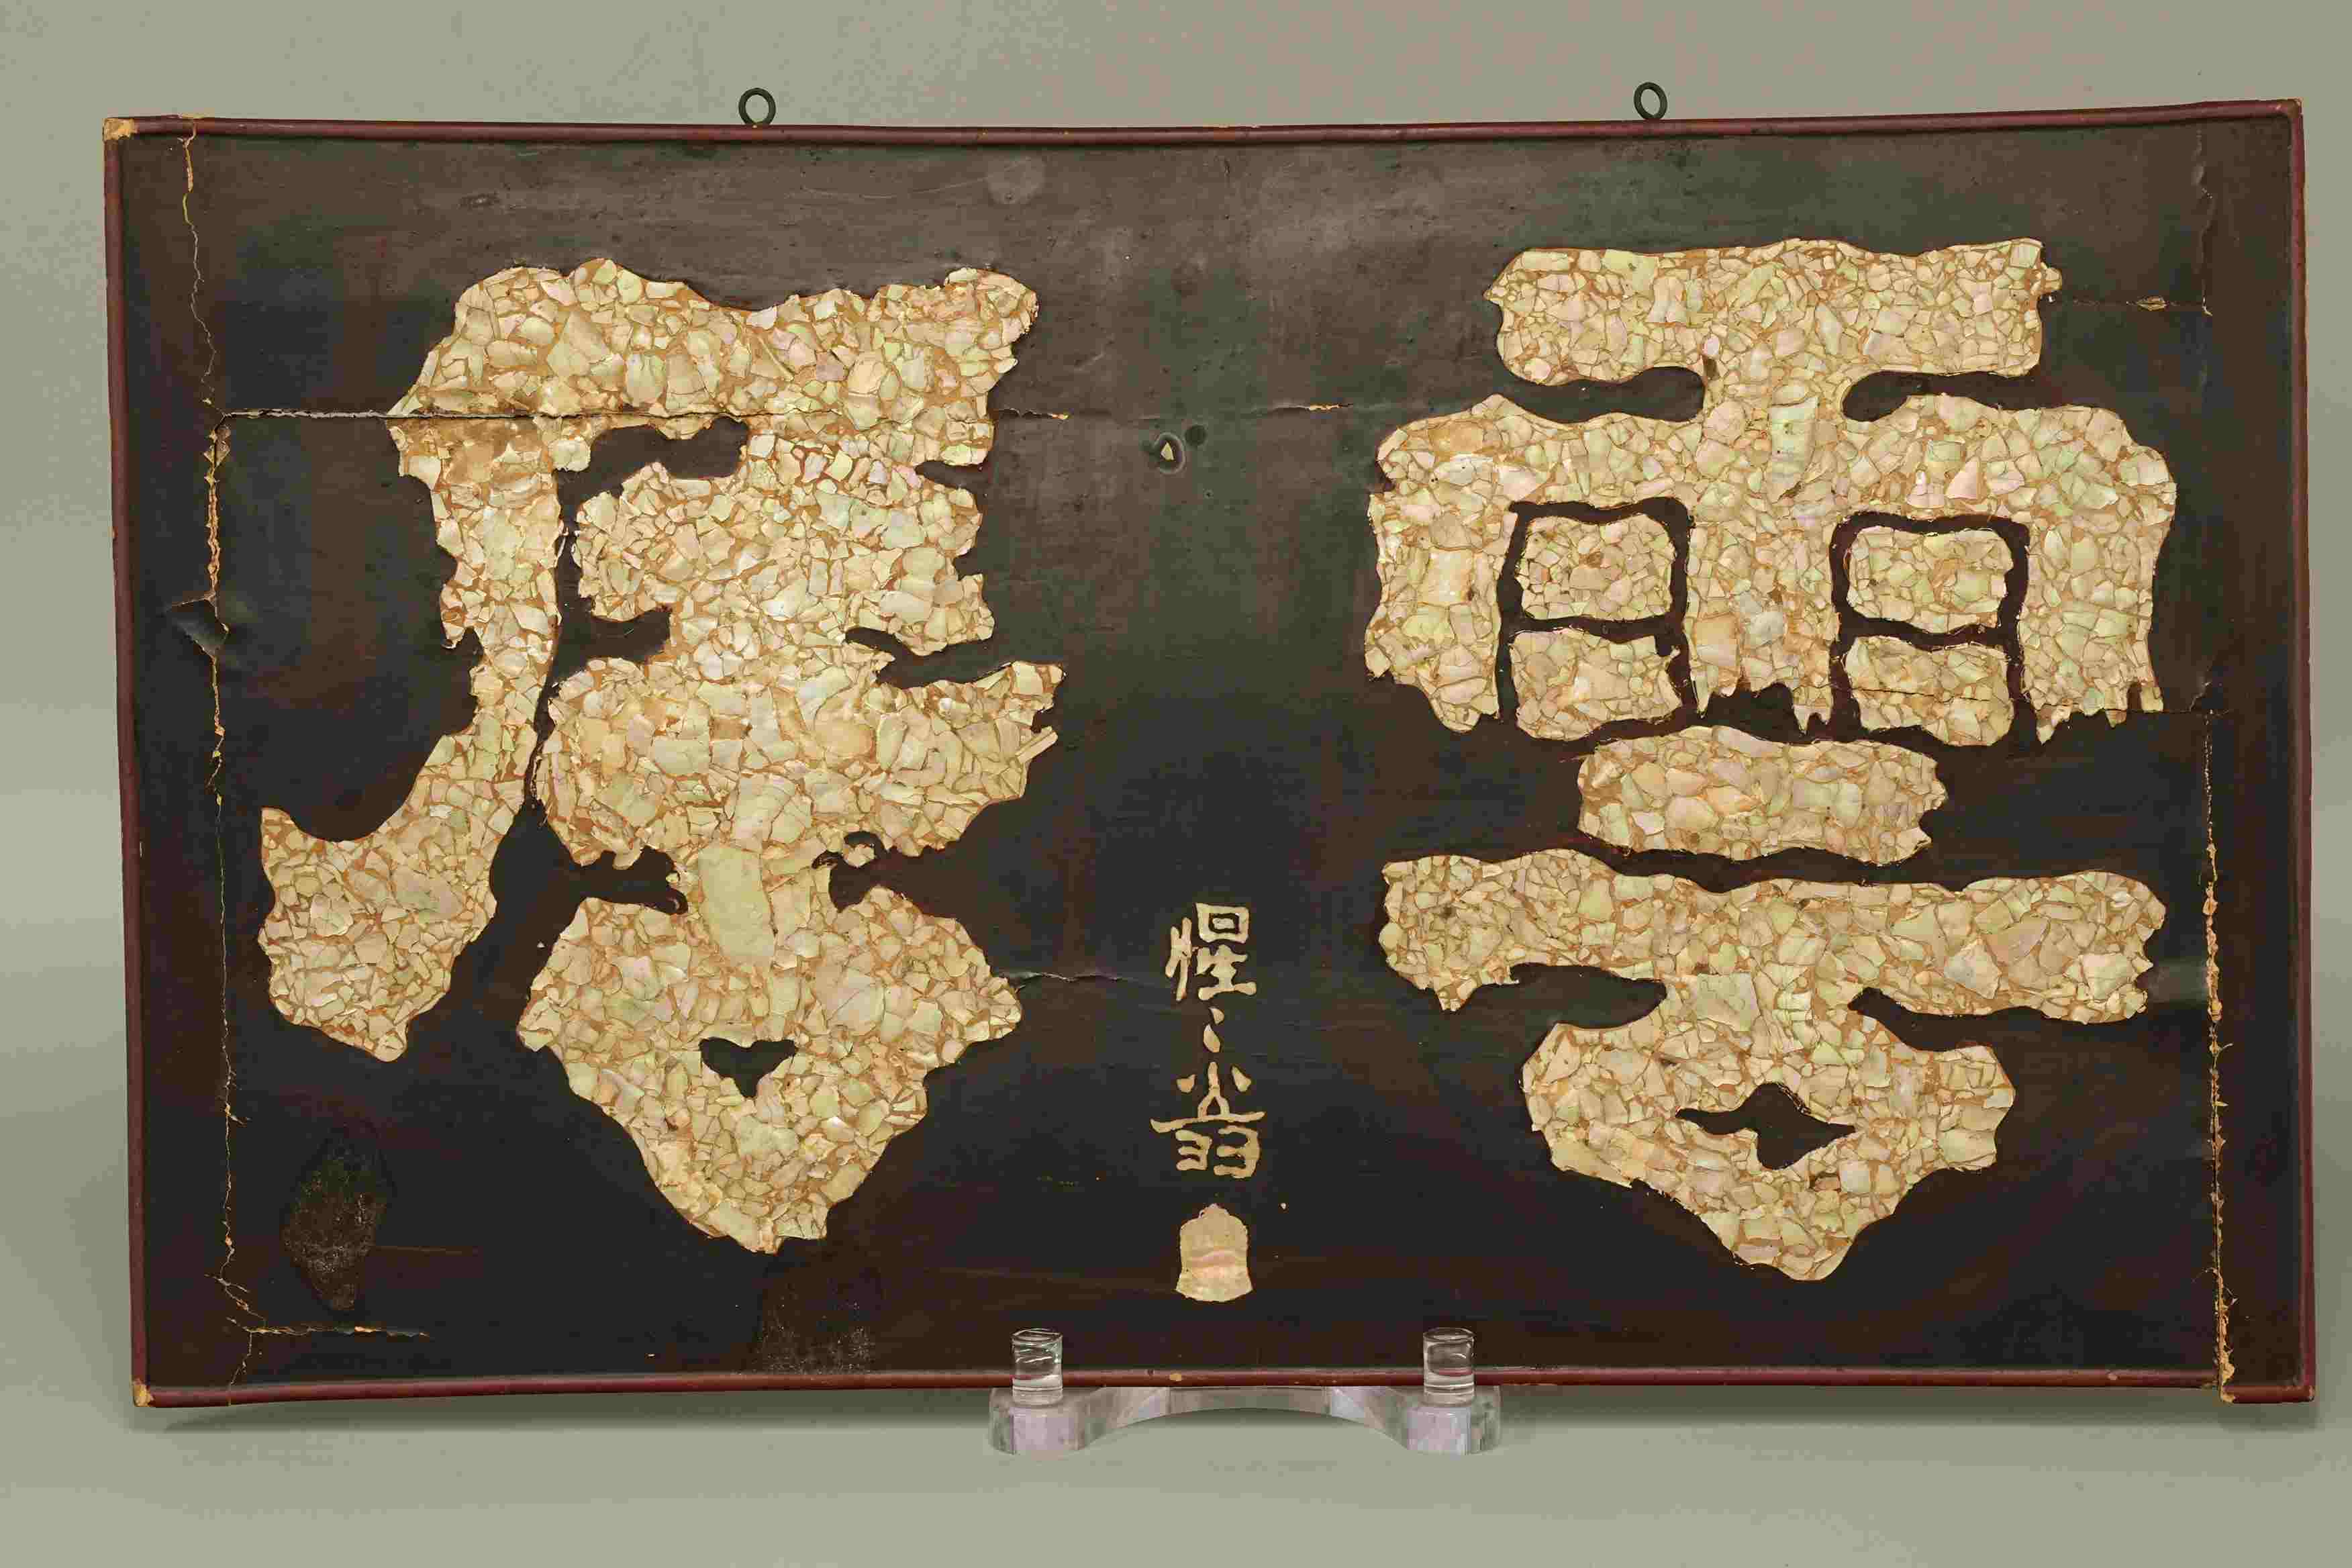 雲
惺々翁